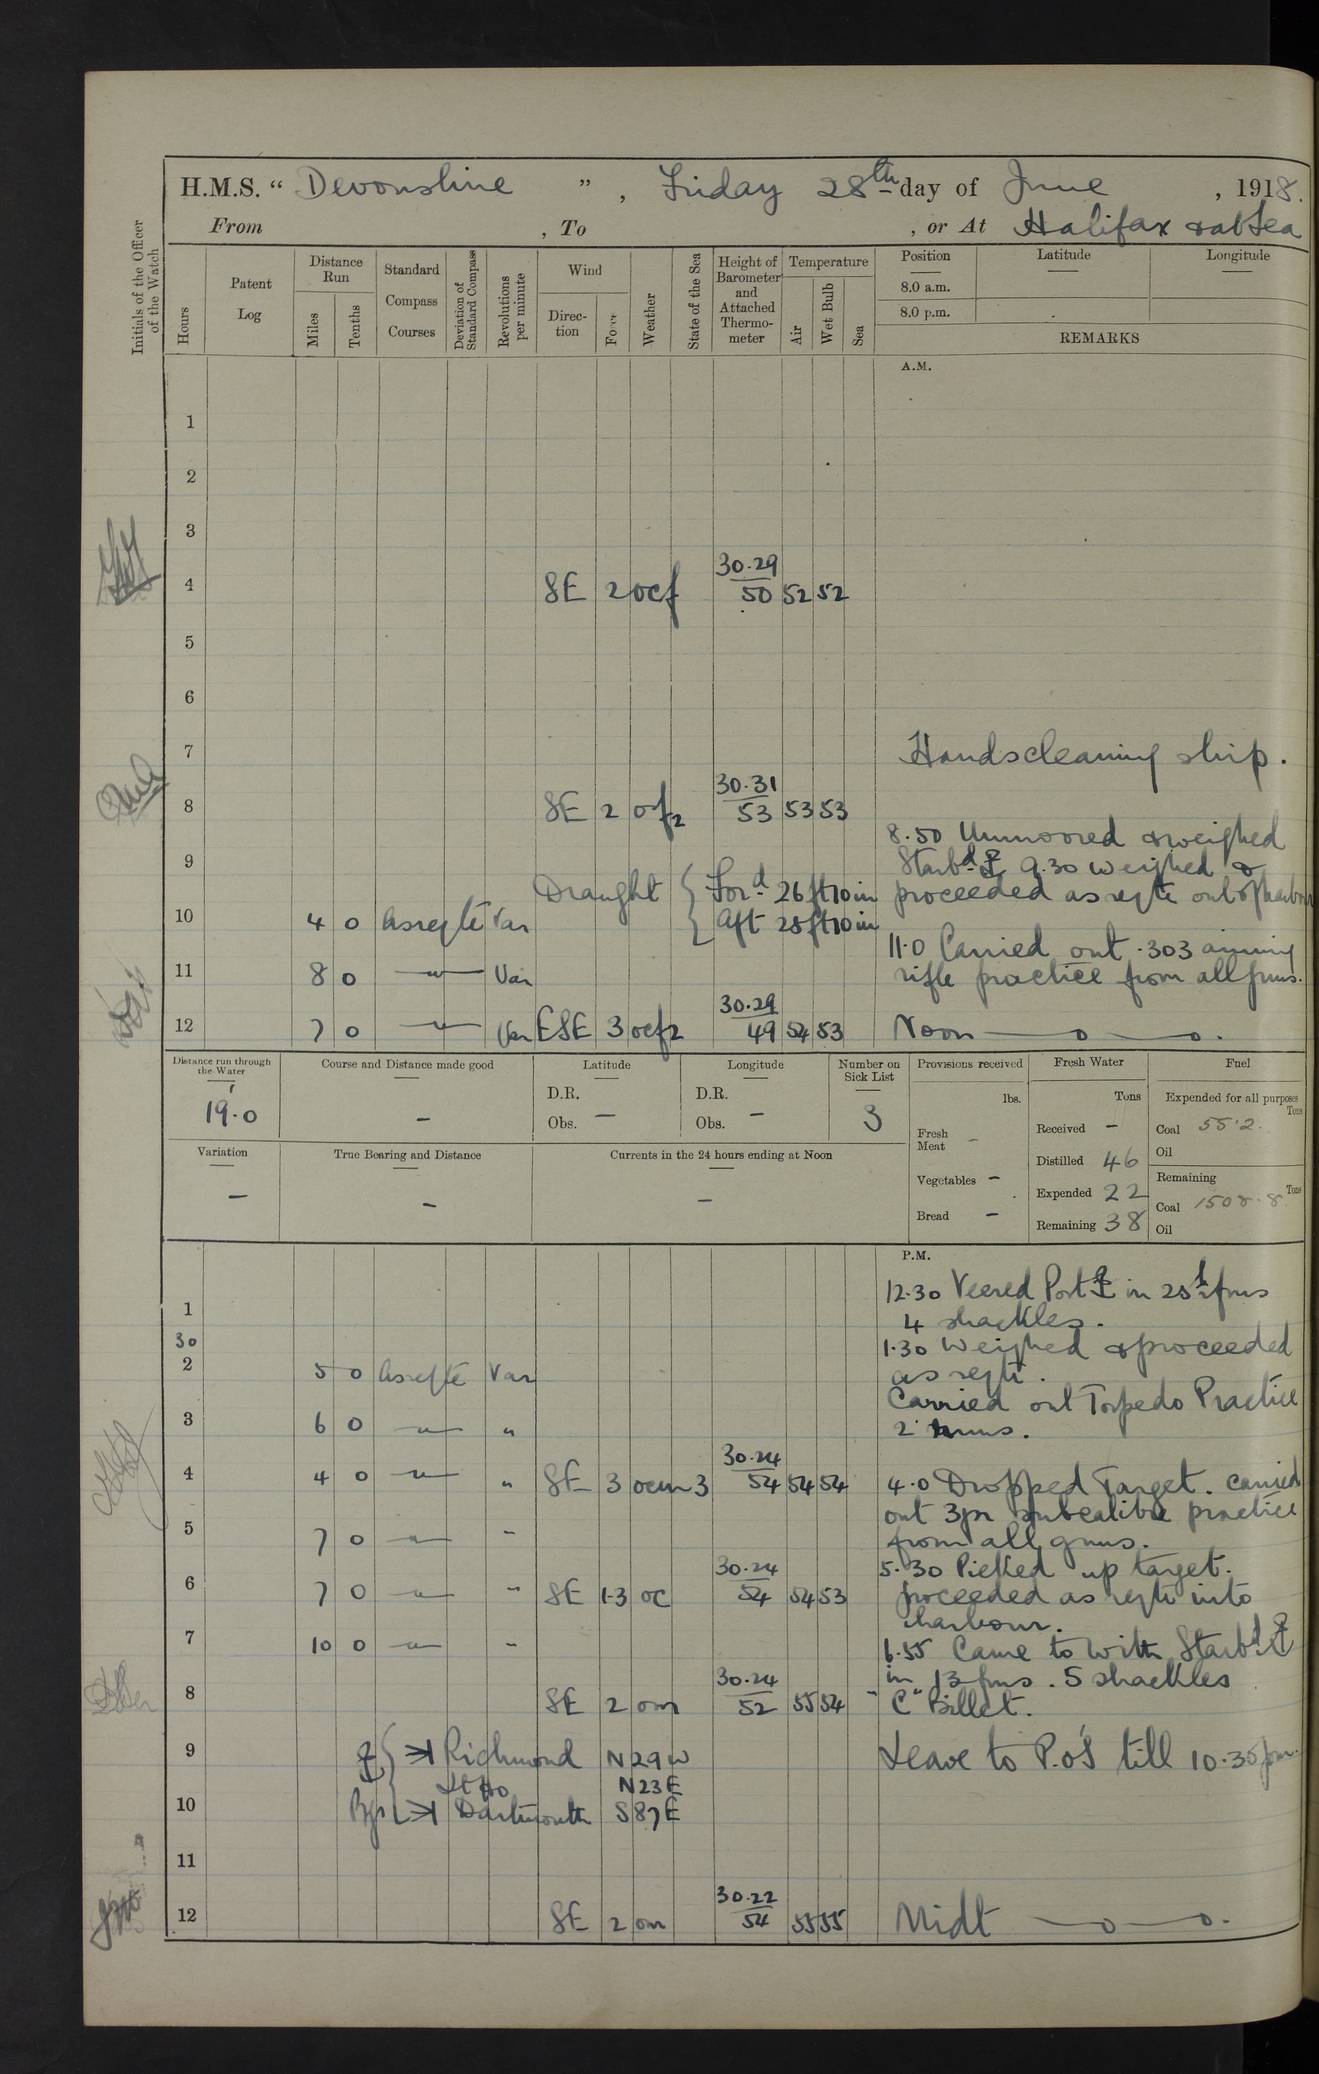 H.M.S. “ Devonshire ” , Friday 28th day of June , 1918.
From , To , or At Halifax & at Sea
Initials of the Officer of the Watch
Hours
Patent Log
Distance Run
Miles
Tenths
Standard Compass Courses
Deviation of Standard Compass
Revolutions per minute
Wind
Direction
Force
Weather
State of the Sea
Height of Barometer and Attached Thermometer
Temperature
Air
Wet Bulb
Sea
Position Latitude Longitude
8.0 a.m.
8.0 p.m.
REMARKS
A.M.
1
2
3
30.29
4 SE 2 ocf 50 52 52
5
6
7 Hands cleaning ship.
30.31
8 SE 2 of 2 53 53 53
8.50 Unmoored & weighed
9 Starbd 9.30 weighed &
Draught { Ford 26 ft 10 in proceeded as reqte out of harbour
10 4 0 As reqte Var Aft 28 ft 10 in
11.0 Carried out .303 aiming
11 8 0 〃 Var rifle practice from all guns.
30.29
12 7 0 〃 Var ESE 3 ocf 2 49 54 53 Noon
Distance run through the Water
19.0
Course and Distance made good
-
Latitude
D.R.
Obs. -
Longitude
D.R.
Obs. -
Number on Sick List
3
Variation
-
True Bearing and Distance
-
Currents in the 24 hours ending at Noon
-
Provisions received
lbs.
Fresh Meat -
Vegetables -
Bread -
Fresh Water
Tons
Received -
Distilled 46
Expended 22
Remaining 38
Fuel
Expended for all purposes
Tons
Coal 55.2.
Oil
Remaining
Tons
Coal 1508.8
Oil
P.M.
12.30 Veered Port in 28 fms
1 4 shackles.
30 1.30 Weighed & proceeded
2 5 0 As reqte Var as reqte.
Carried out Torpedo Practice
3 6 0 〃 〃 2 runs.
30.24
4 4 0 〃 〃 SE 3 ocm 3 54 54 54 4.0 Dropped Target. Carried
out 3pr subcalibre practice
5 7 0 〃 〃 from all guns.
30.24 5.30 Picked up target.
6 7 0 〃 〃 SE 1-3 oc 54 54 53 proceeded as reqte into
harbour.
7 10 0 〃 〃 6.55 Came to with Starbd
30.24 in 13 fms. 5 shackles
8 SE 2 om 52 55 54 "C" Billet.
9 Richmond N 29 W Leave to P.O's till 10.30 pm.
Lt Ho N 23 E
10 Bgs Dartmouth S 87 E
11
30.22
12 SE 2 om 54 55 55 Midt